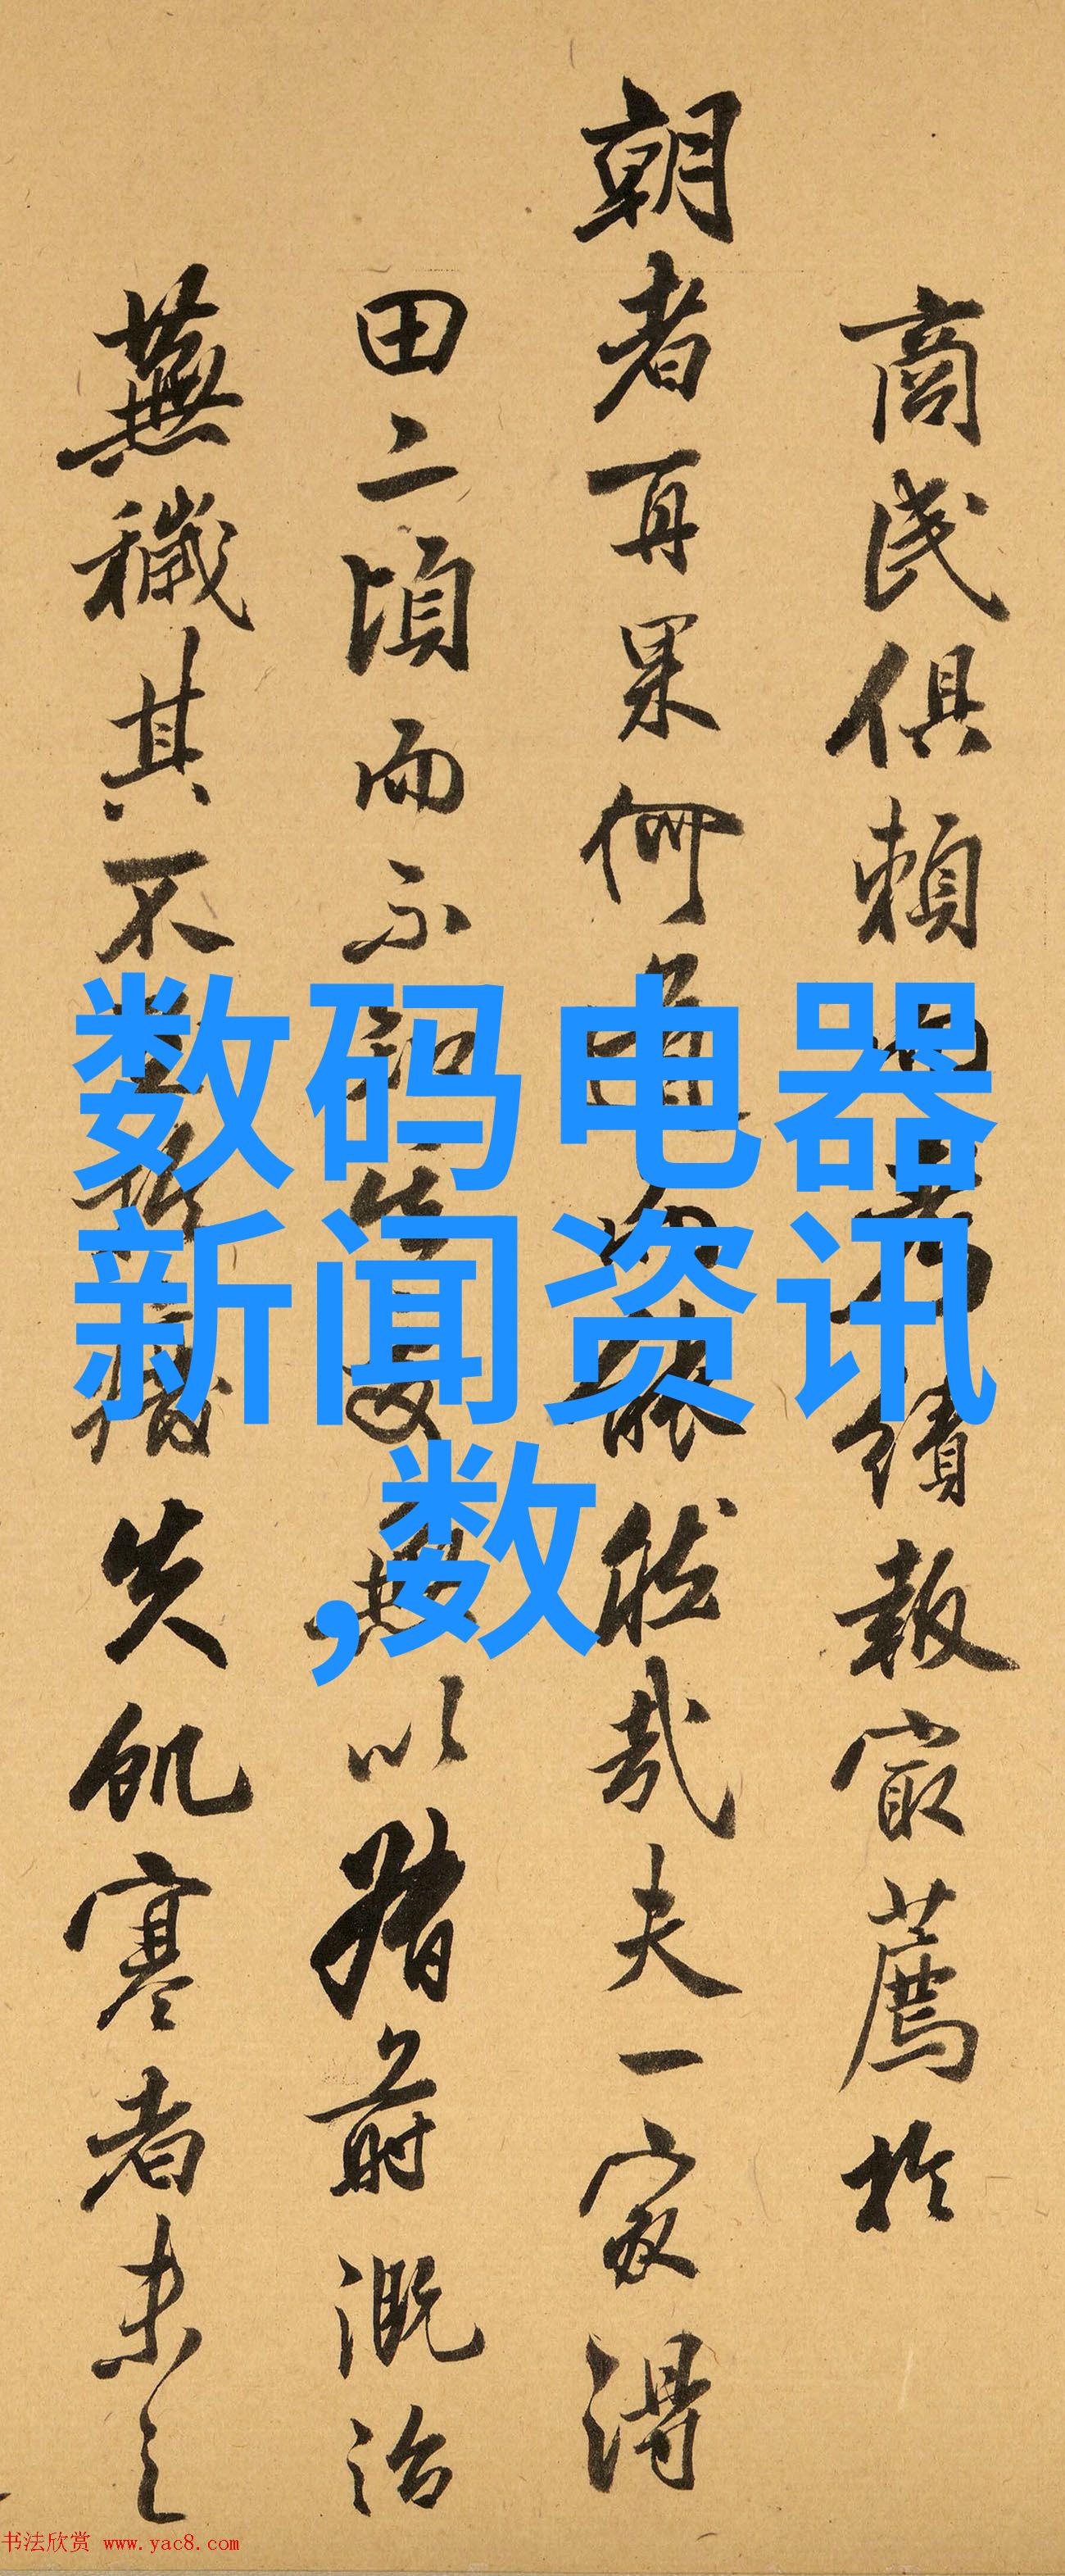 商民俱賴
績報最薦於
朝者再果何
能然哉夫一家得
田二頃而不
以猪前溉治
蕪穢其不
失飢寒者未之
数码电器
新闻资讯
,数
书法欣赏 www.yac8.com